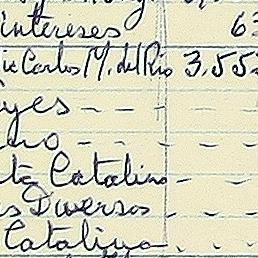 intereses 63
ie Carlos M. del Rio 3.552
yes - - -
no - - - - -
ta Catalino - - -
s Diversos - - -
Catalina - - -